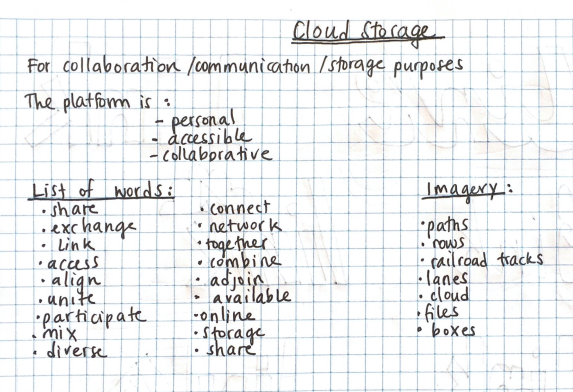 Cloud Storage
For collaboration /communication /storage purposes
The platform is :
- personal
- accessible
- collaborative
List of words:
• share
• exchange
• Link
• access
• align
• unite
• participate
• mix
• diverse
• connect
• network
• together
• combine
• adjoin
• available
• online
• storage
• share
Imagery:
• paths
• rows
• railroad tracks
• lanes
• cloud
• files
• boxes